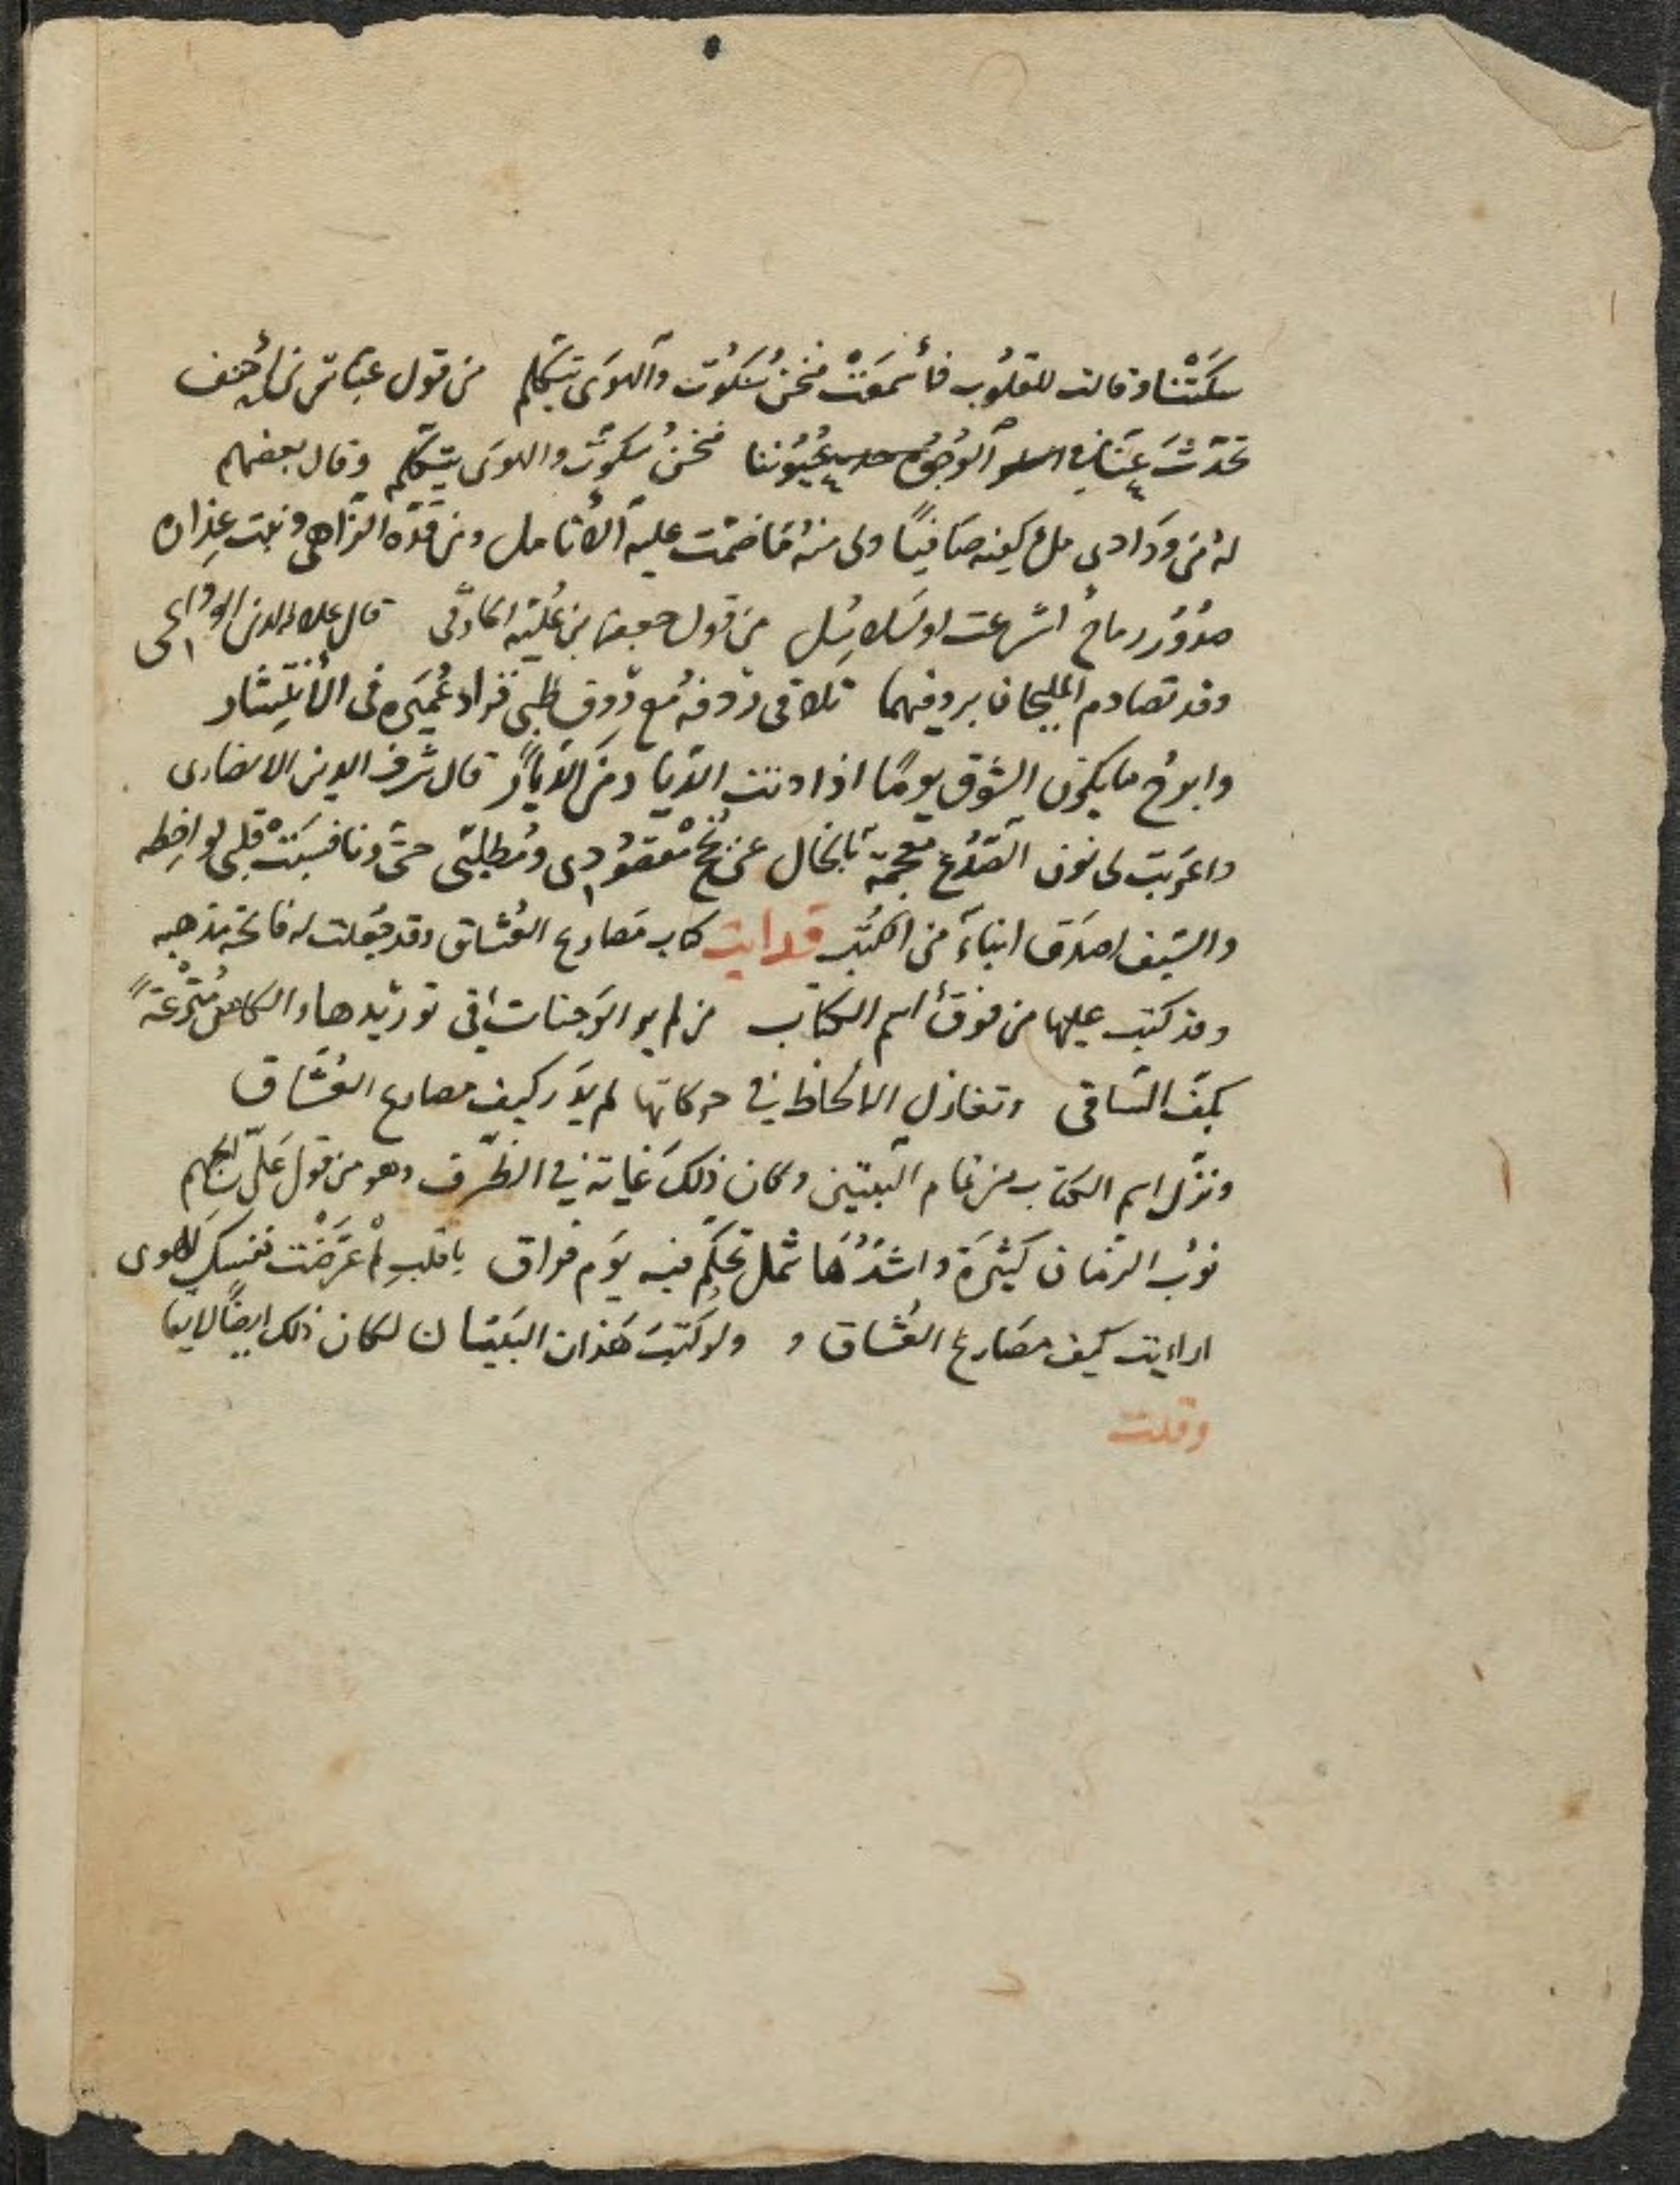 سكتنا وقالت للقلوب فأسمعت فنحن سكوت والهوى يتكلم من قول عباس بن أحنف
تحدث عنا في الوجوه عيوننا فنحن سكوت والهوى يتكلم وقال بعضهم
له من ودادي ملء كفيه صافيا ولى منه ما ضمت عليه الأنامل ومن قده الزاهي ونبت عذاره
صدور رماح اشرعت او سلاسل من قول جعفر بن علبة الحارثي قال علاء الدين الوداعي
وقد تصادم المليحان بردفيهما تلاقى ردفه مع ردف ظبي فزاد غميره في الأنتشار
وابرح ما يكون الشوق يوما اذا دنت الديار من الديار قال شرف الدين الانصاري
واعربت لي نون الصدغ معجمة بالخال عن نجح مقصودي ومطلبي حتى دنا فسبت قلبي لواحظه
والسيف اصدق انباء من الكتب قد رايت كتاب مصارع العشاق وقد جعلت له فاتحة مذهبه
وقد كتب عليها من فوق اسم الكتاب من لم ير الوجنات في توريدها والكاس مترعة
بكف الساقي وتغازل الالحاظ في حركاتها لم يدر كيف مصارع العشاق
ونزل اسم الكتاب من تمام البيتين وكان ذلك غاية في الظرف وهو من قول علي بن الجهم
نوب الزمان كثيرة واشدها شمل تحكم فيه يوم فراق يا قلب لم عرضت نفسك للهوى
اراءيت كيف مصارع العشاق و ولو كتب هذان البيتان لكان ذلك ايضا لايقا
وقلت